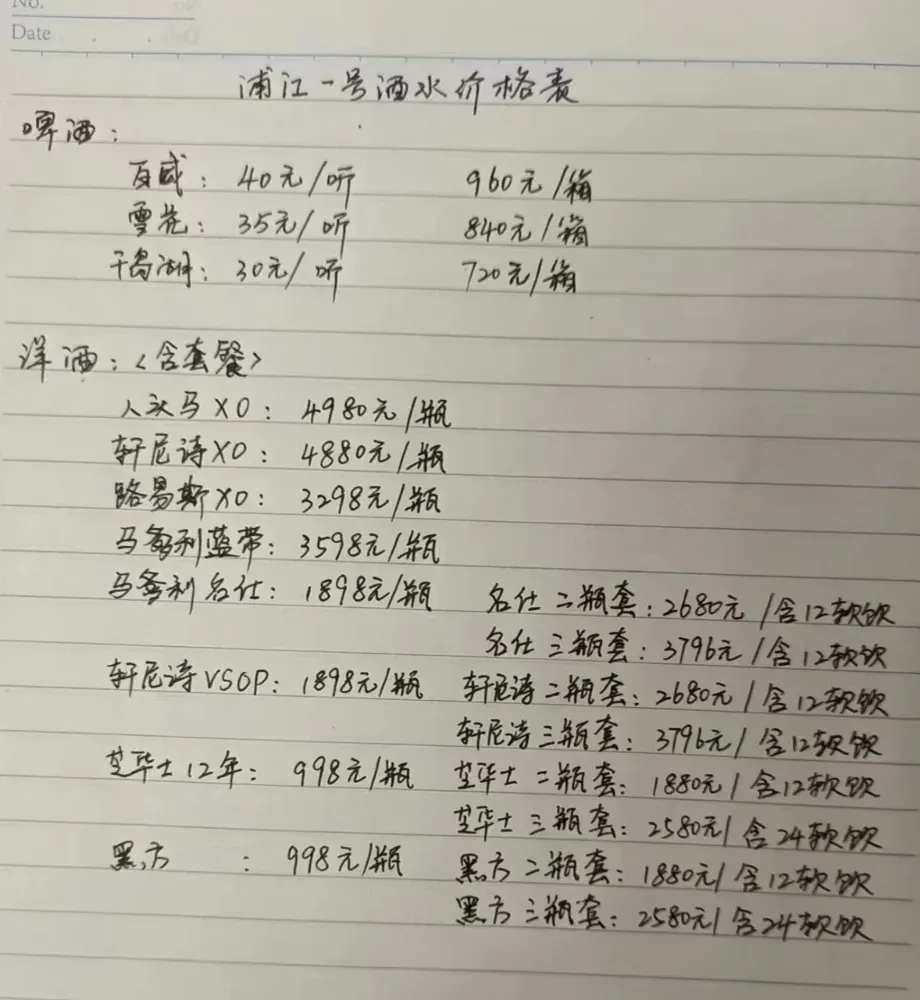 No.
Date
浦江一号酒水价格表
啤酒：
百威：40元/听 960元/箱
雪花：35元/听 840元/箱
千岛湖：30元/听 720元/箱
洋酒：<含套餐>
人头马XO：4980元/瓶
轩尼诗XO：4880元/瓶
路易斯XO：3298元/瓶
马爹利蓝带：3598元/瓶
马爹利名仕：1898元/瓶 名仕二瓶套：2680元/含12软饮
名仕三瓶套：3796元/含12软饮
轩尼诗VSOP：1898元/瓶 轩尼诗二瓶套：2680元/含12软饮
轩尼诗三瓶套：3796元/含12软饮
芝华士12年：998元/瓶 芝华士二瓶套：1880元/含12软饮
芝华士三瓶套：2580元/含24软饮
黑方：998元/瓶 黑方二瓶套：1880元/含12软饮
黑方三瓶套：2580元/含24软饮